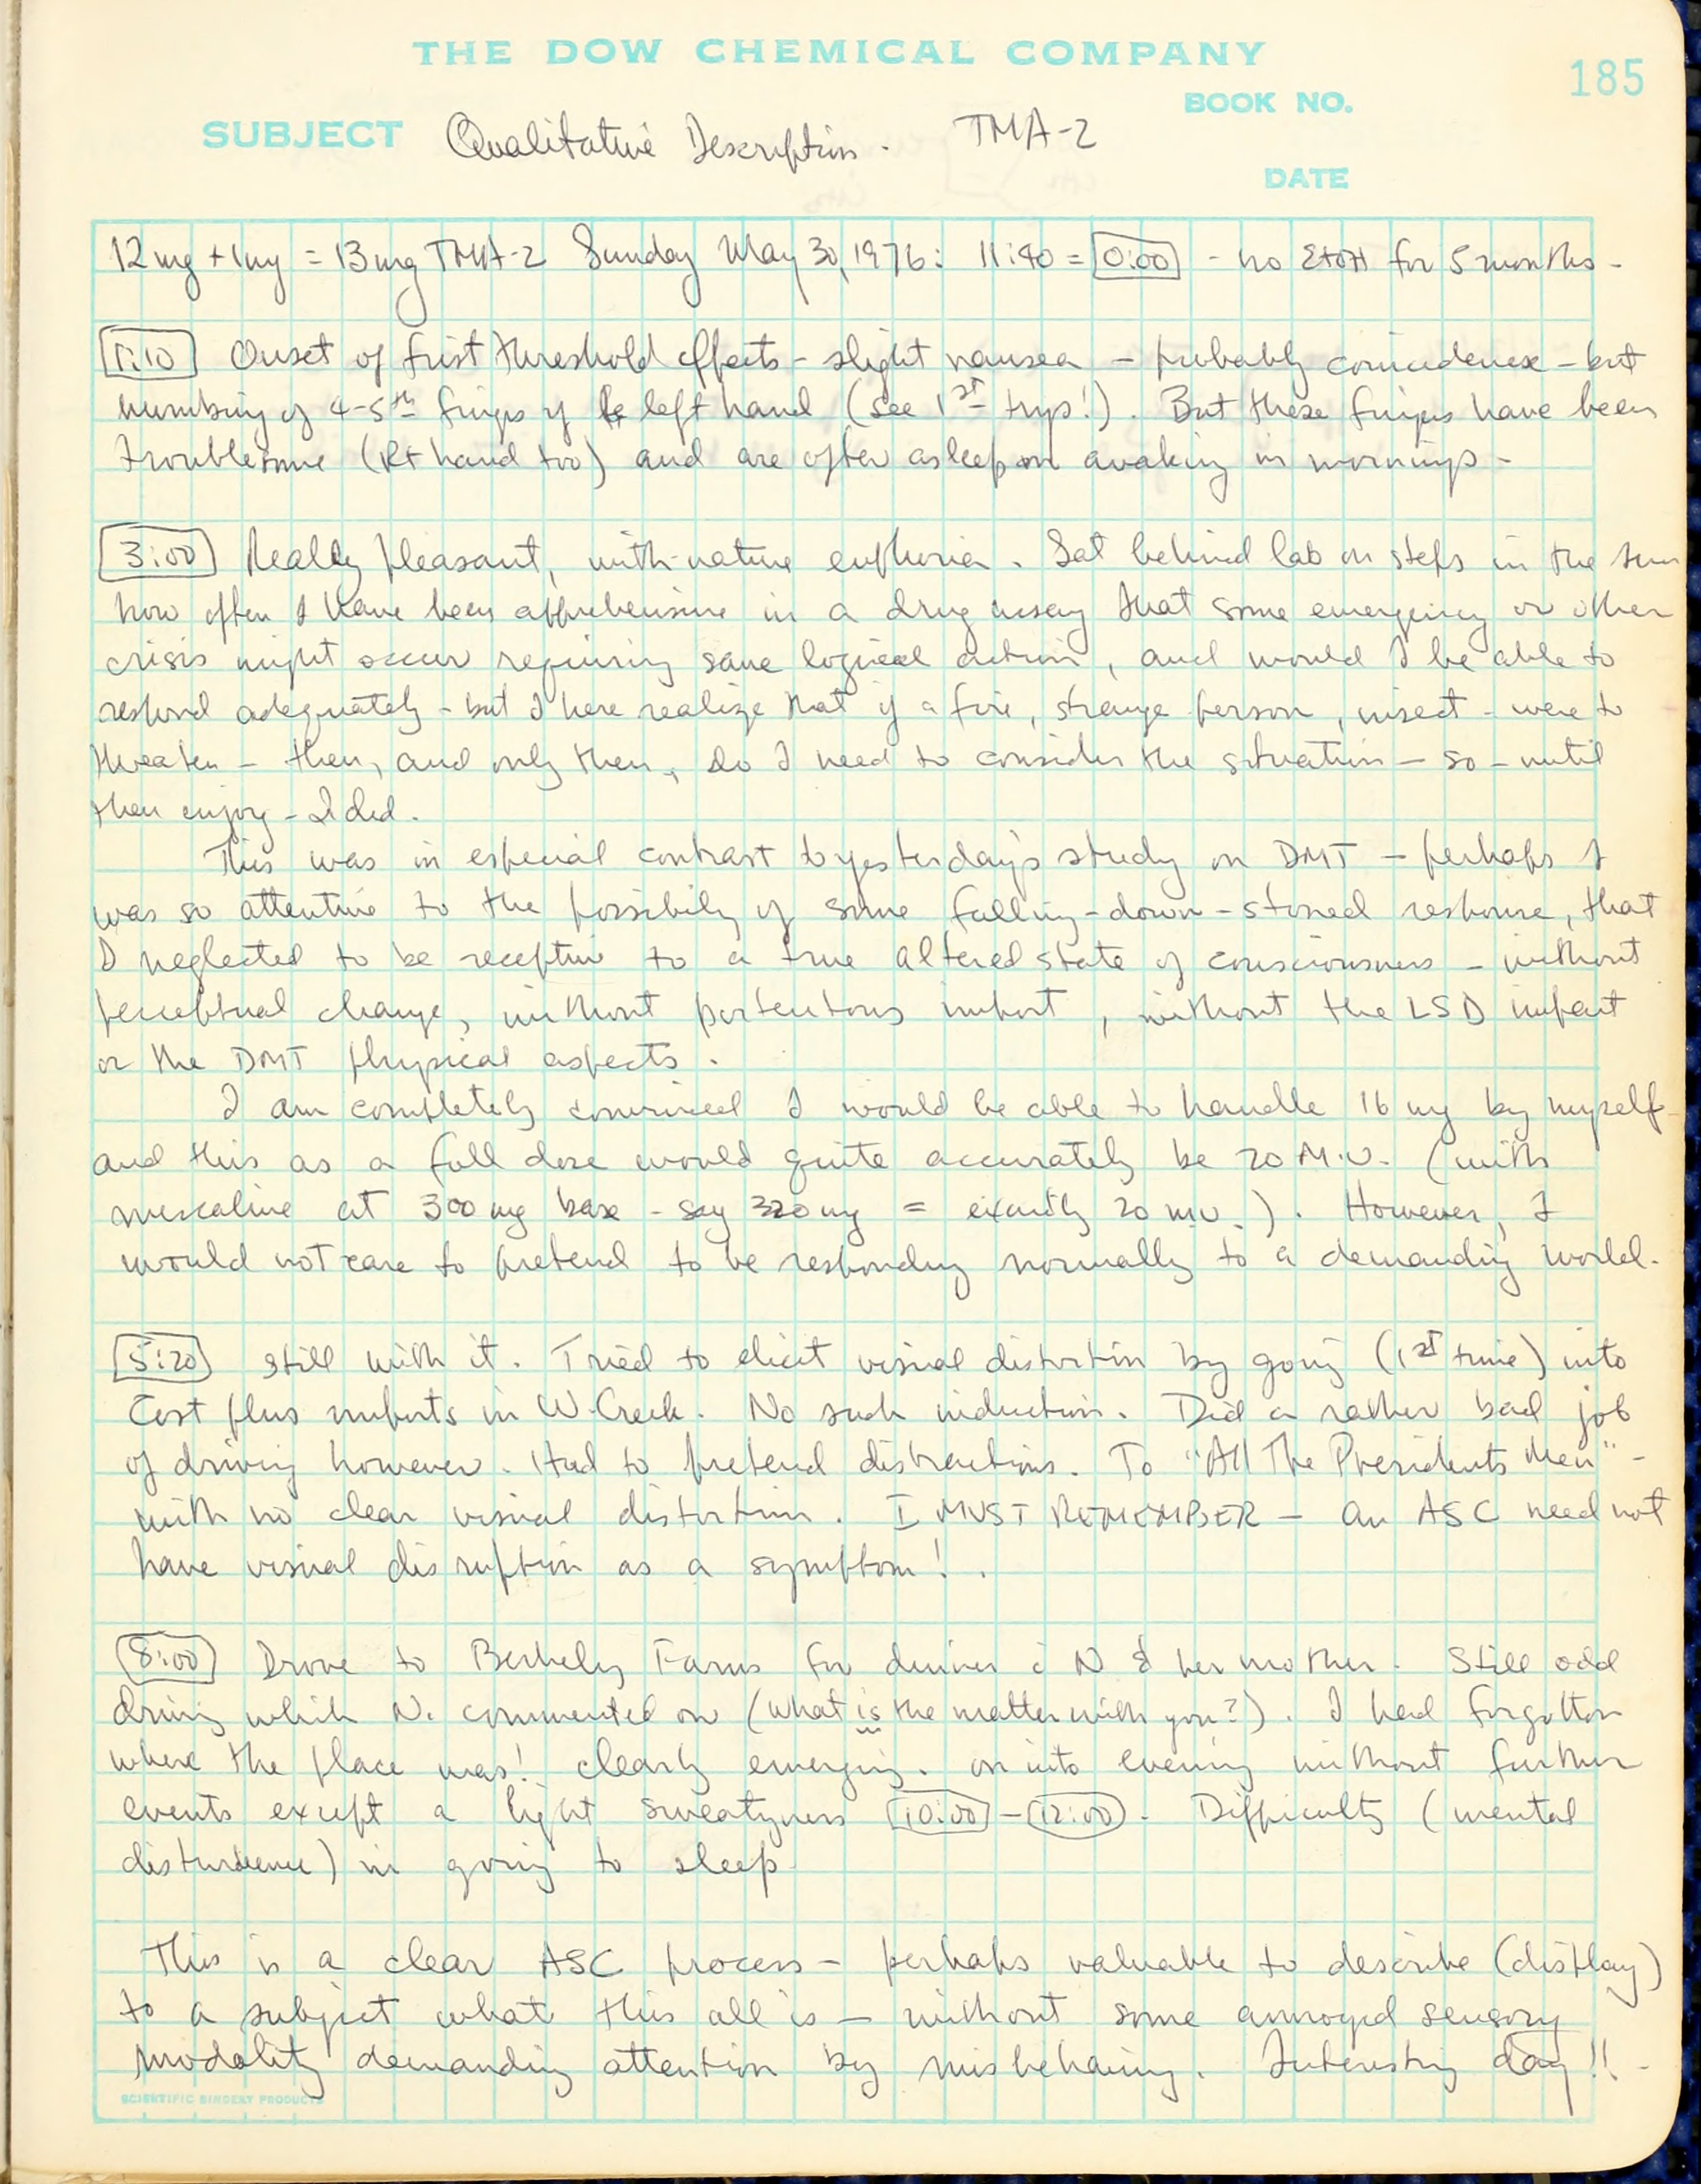 THE DOW CHEMICAL COMPANY
185
BOOK NO.
SUBJECT Qualitative Description. TMA-2
DATE
12mg + 1mg = 13mg TMA-2 Sunday May 30, 1976: 11:40 = 0:00 - no EtOH for 5 months -
1:10 Onset of first threshold effects - slight nausea - probably coincidence - but
numbing of 4-5th fingers of left hand (see 1st tryps!). But these fingers have been
troublesome (Rt hand too) and are often asleep on awaking in mornings -
3:00 Really pleasant, with-nature euphoria. Sat behind lab on steps in the sun
how often I have been apprehensive in a drug assay that some emergency or other
crisis might occur requiring sane logical action, and would I be able to
respond adequately - but I here realize that if a fire, strange person, insect - were to
threaten - then, and only then, do I need to consider the situation - so - until
then enjoy - I did.
This was in especial contrast to yesterday's study on DMT - perhaps I
was so attentive to the possibility of some falling-down-stoned response, that
I neglected to be receptive to a true altered state of consciousness - without
perceptual change, without portentous import, without the LSD impact
or the DMT physical aspects.
I am completely convinced I would be able to handle 16 mg by myself
and this as a full dose would quite accurately be 20 M.U. (with
mescaline at 300 mg base - say 320 mg = exactly 20 m.u.). However, I
would not care to pretend to be responding normally to a demanding world.
5:20 Still with it. Tried to elicit visual distortion by going (1st time) into
Cost plus imports in W. Creek. No such induction. Did a rather bad job
of driving however. Had to pretend distractions. To "All The Presidents Men" -
with no clear visual distortion. I MUST REMEMBER - an ASC need not
have visual disruption as a symptom!.
8:00 Drove to Berkeley Farms for dinner c N & her mother. Still odd
driving which N. commented on (what is the matter with you?). I had forgotten
where the place was! clearly emerging. on into evening without further
events except a light sweatyness 10:00 - 12:00. Difficulty (mental
disturbance) in going to sleep
This is a clear ASC process - perhaps valuable to describe (display)
to a subject what this all is - without some annoyed sensory
modality demanding attention by misbehaving. Interesting day!! -
SCIENTIFIC BINDERY PRODUCTS